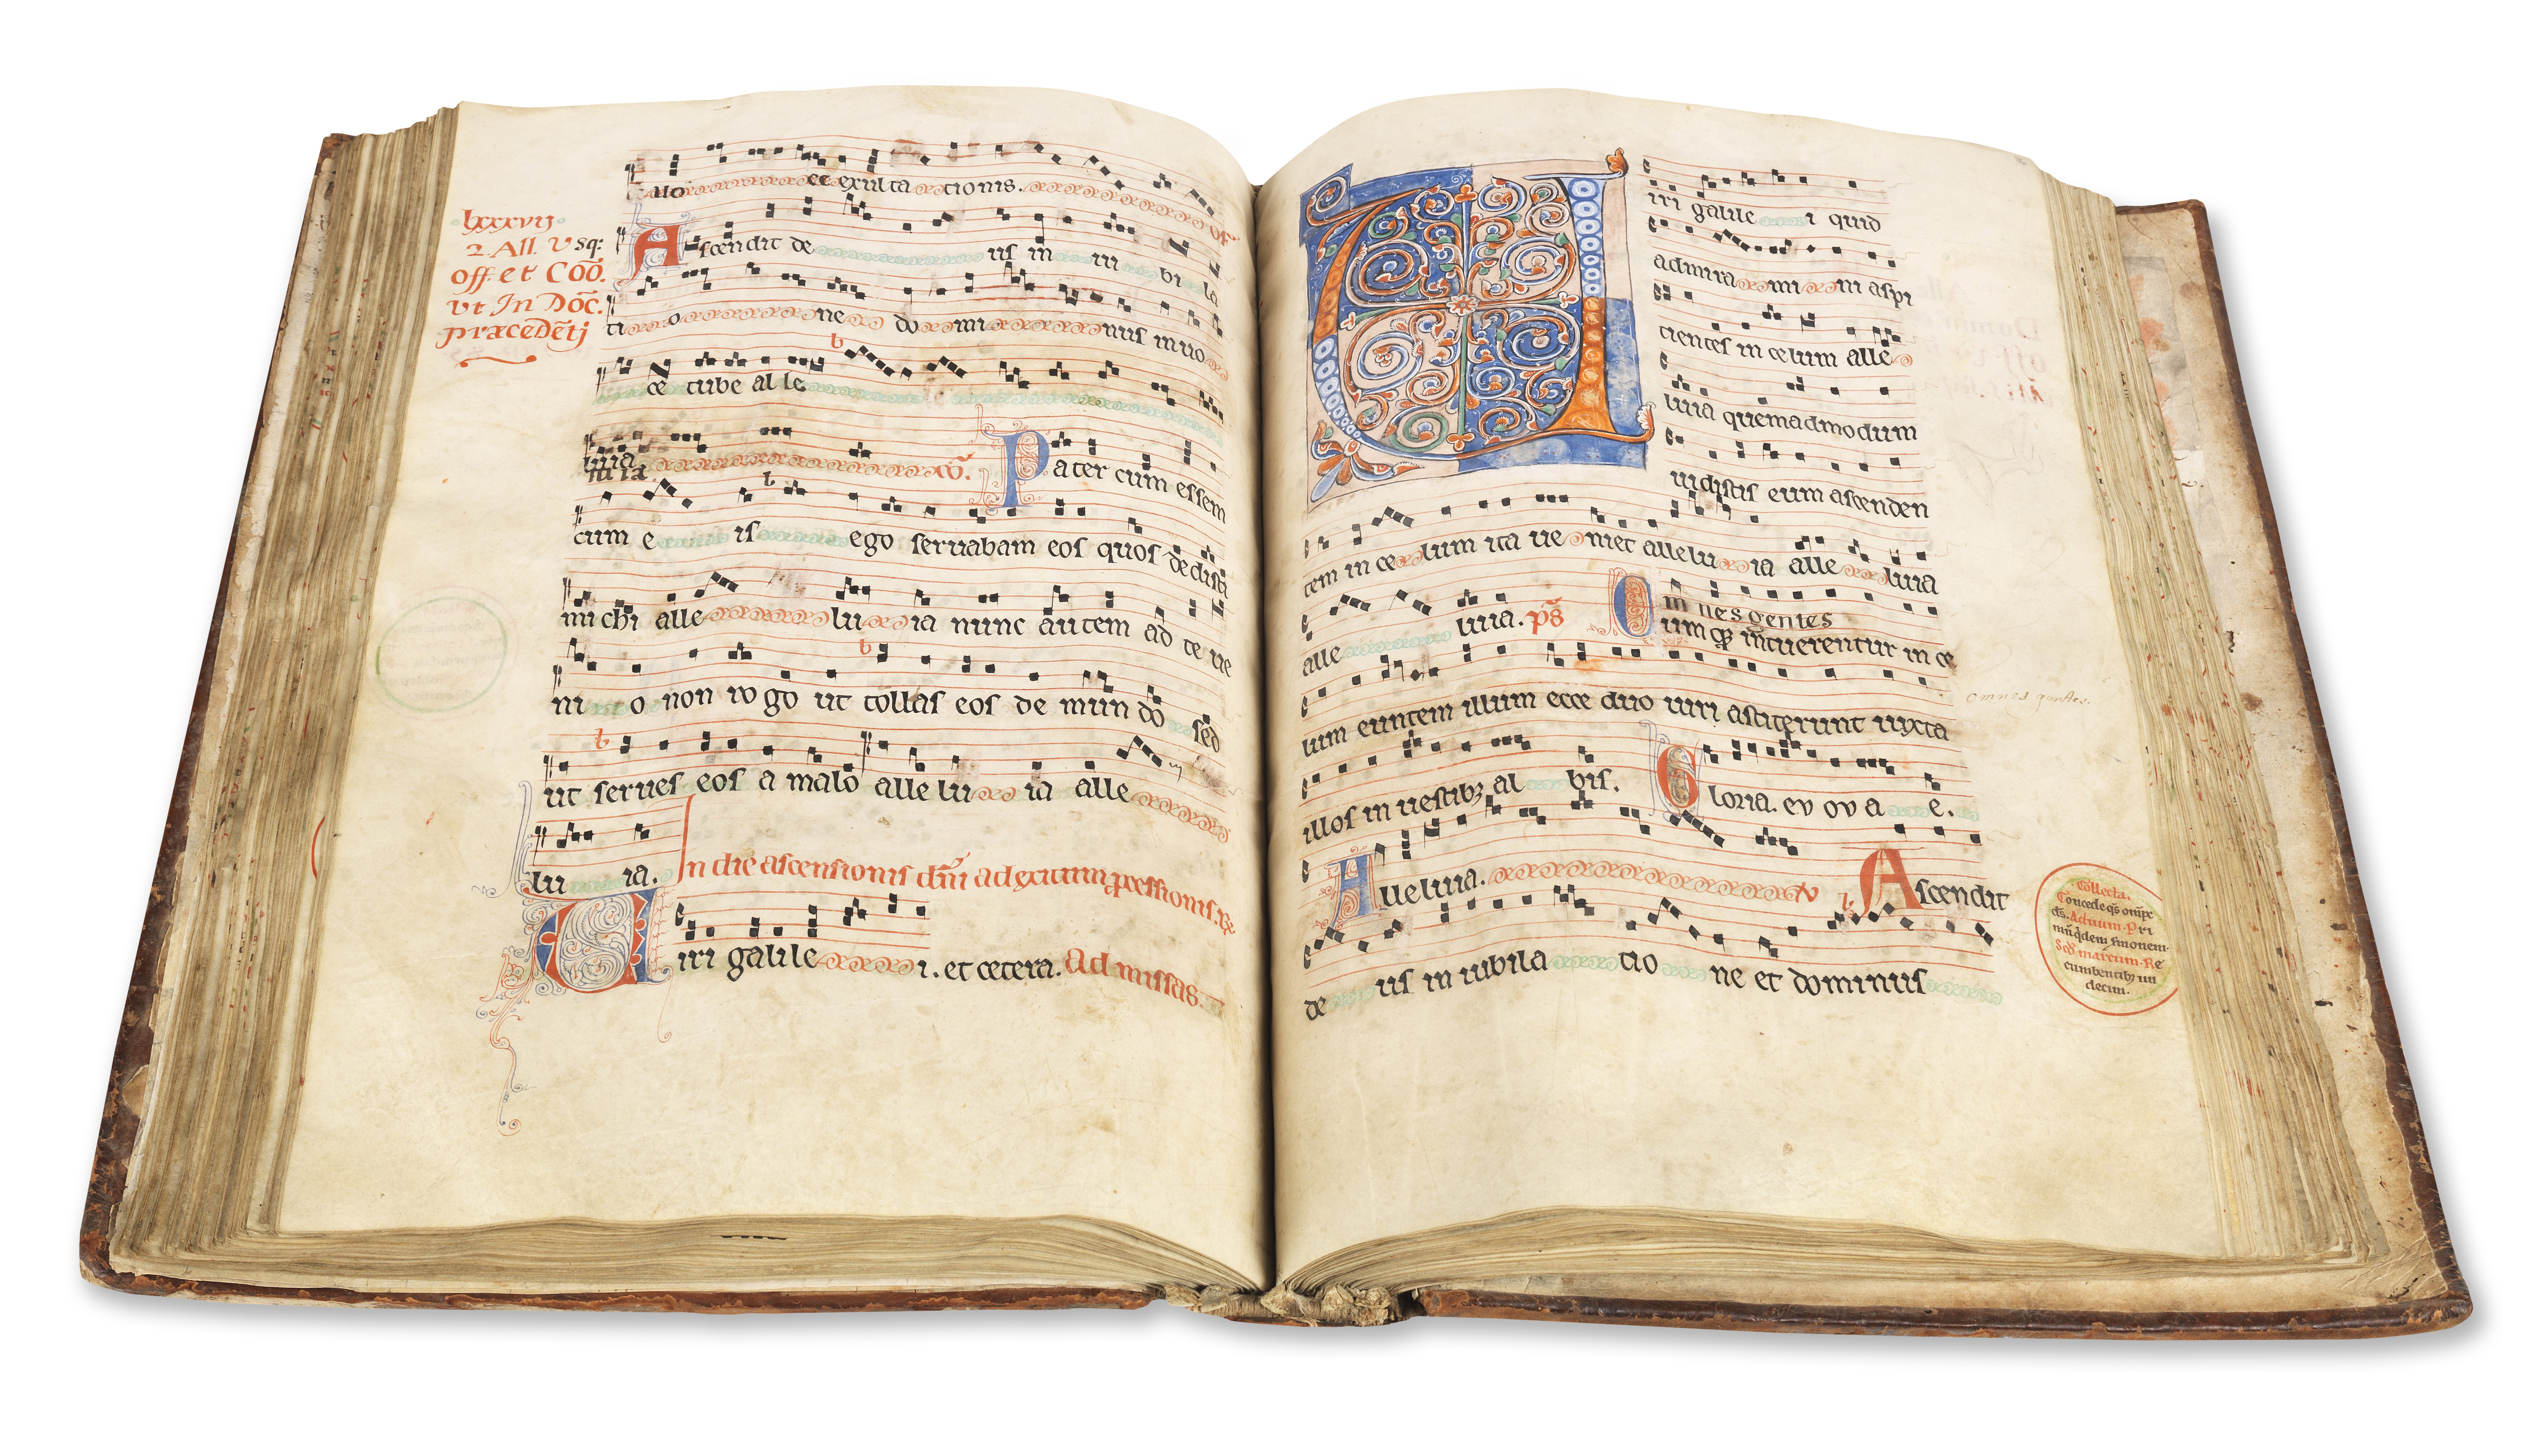 lxxxvij
2 All. Vsq:
off. et Coō.
vt In Doc̄.
præcedēti
illo ce exulta tionis. of
Ascendit de us in iu bi la
ti o ne do mi nus in uo
ce tube al le
luia cō. Pater cum essem
cum e is ego seruabam eos quos dedisti
michi alle lu ia nunc autem ad te ue
ni o non rogo ut tollas eos de mundo sed
ut serues eos a malo alle lu ia alle
lu ia. In die ascensionis dn̄i ad
Uiri galile i. et cetera. Ad missas.
Uiri galile i quid
admira mi ni aspi
cientes in celum alle
luia quemadmodum
uidistis eum ascenden
tem in ce lum ita ue niet allelu ia alle luia
alle luia. ps̄ Omnes gentes
umqꝫ intuerentur in ce
omnes gentes.
lum euntem illum ecce duo uiri astiterunt iuxta
illos in uestibꝫ al bis. Gloria. ev ov a e.
Alleluia. v Ascendit
de us in iubila tio ne et dominus
Collecta.
Concede qs̄ omp̄c
ds̄. Actuum. Pri
mū qdem smonem.
Scd̄ marcum. Re
cumbentibꝫ un
decim.